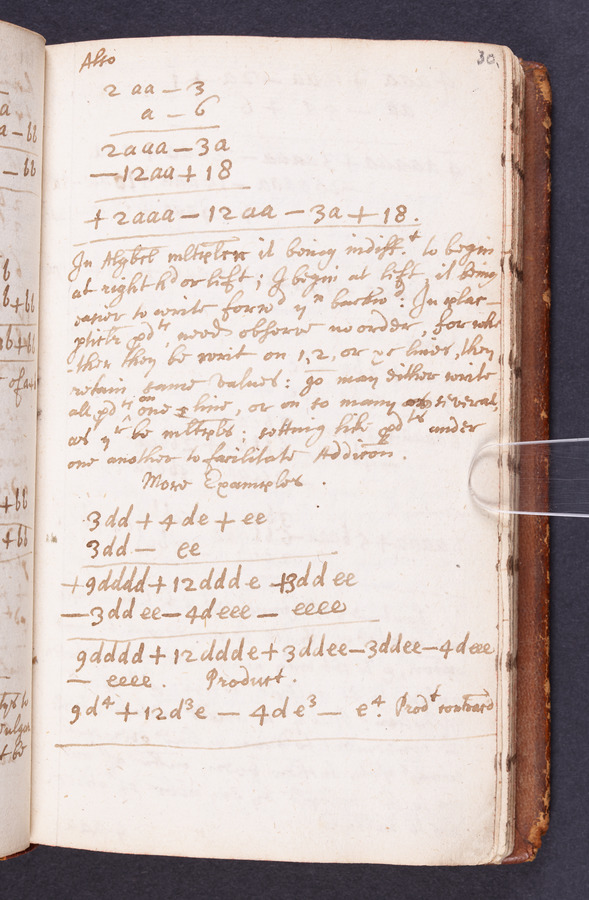 30.
Also
2 aa — 3
a — 6
2aaa — 3a
— 12aa + 18
+ 2aaa — 12aa — 3a + 18.
In Algbel mltplcn it being indiff.t to begin
at right hd or lift; I begin at lift, it being
easier to write forwd yn backwd: In plac-
ing pdts, need observe no order, for whe
-ther they be writ on 1, 2, or lines, they
retain same values: may either write
all pdts on one line, or on so many several,
as yr be mltplrs: setting like pdts under
one another to facilitate Addicon.
More Examples.
3dd + 4de + ee
3dd — ee
+ 9dddd + 12ddde + 3ddee
— 3ddee — 4deee — eeee
9dddd + 12ddde + 3ddee — 3ddee — 4deee
— eeee. Product.
9d⁴ + 12d³e — 4de³ — e⁴. Prodt contracd
a
a — bb
— bb
b
b + bb
bb + bb
+ bb
+ bb